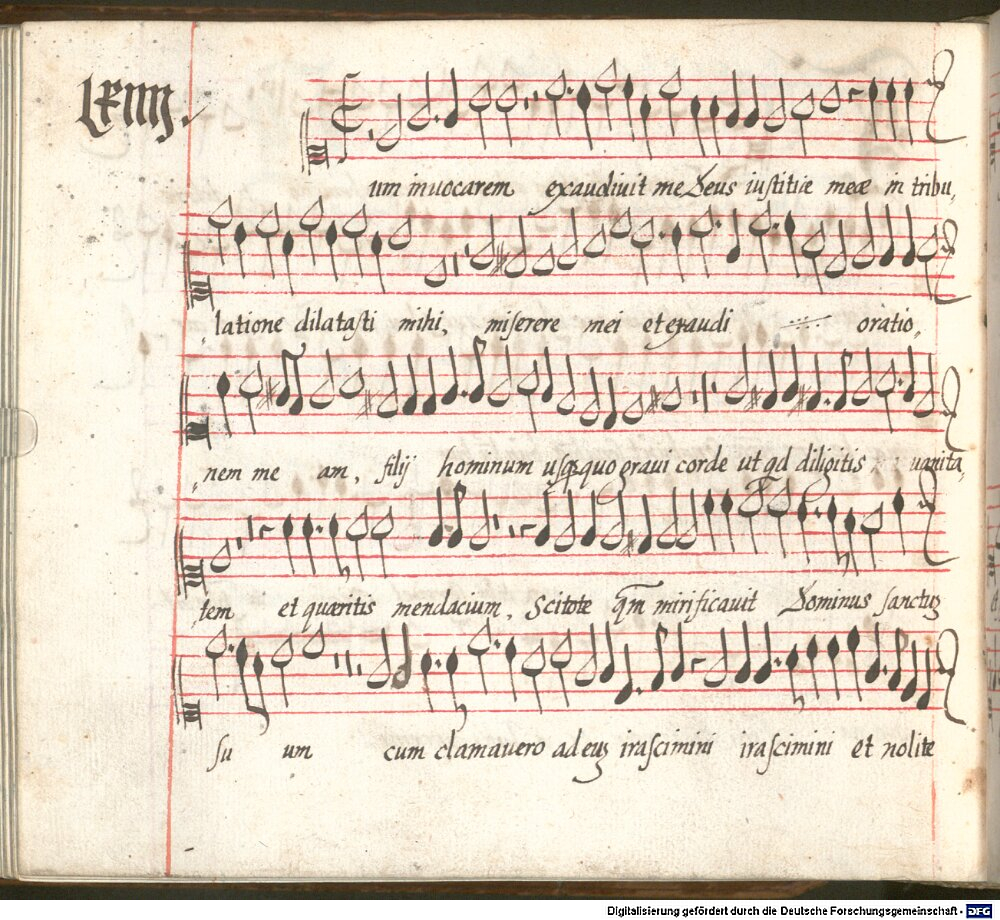 lxiiij.
um inuocarem exaudiuit me Deus iustitiæ meæ in tribu,
latione dilatasti mihi, miserere mei et exaudi oratio,
nem me am, filij hominum usq;quo graui corde ut qd diligitis uanita,
tem et quæritis mendacium, Scitote qm mirificauit Dominus sanctuz
su um cum clamauero ad euz irascimini irascimini et nolite
Digitalisierung gefördert durch die Deutsche Forschungsgemeinschaft - DFG